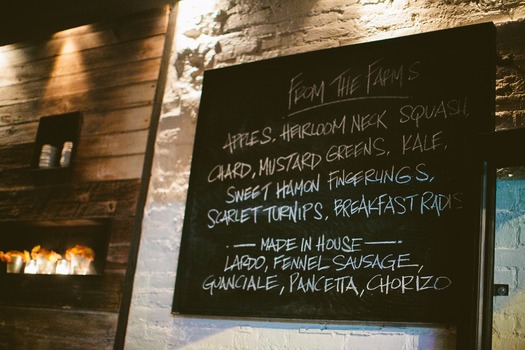 FROM THE FARMS
APPLES, HEIRLOOM NECK SQUASH,
CHARD, MUSTARD GREENS, KALE,
SWEET HAMON FINGERLINGS,
SCARLET TURNIPS, BREAKFAST RADIS
MADE IN HOUSE
LARDO, FENNEL SAUSAGE,
GUANCIALE, PANCETTA, CHORIZO